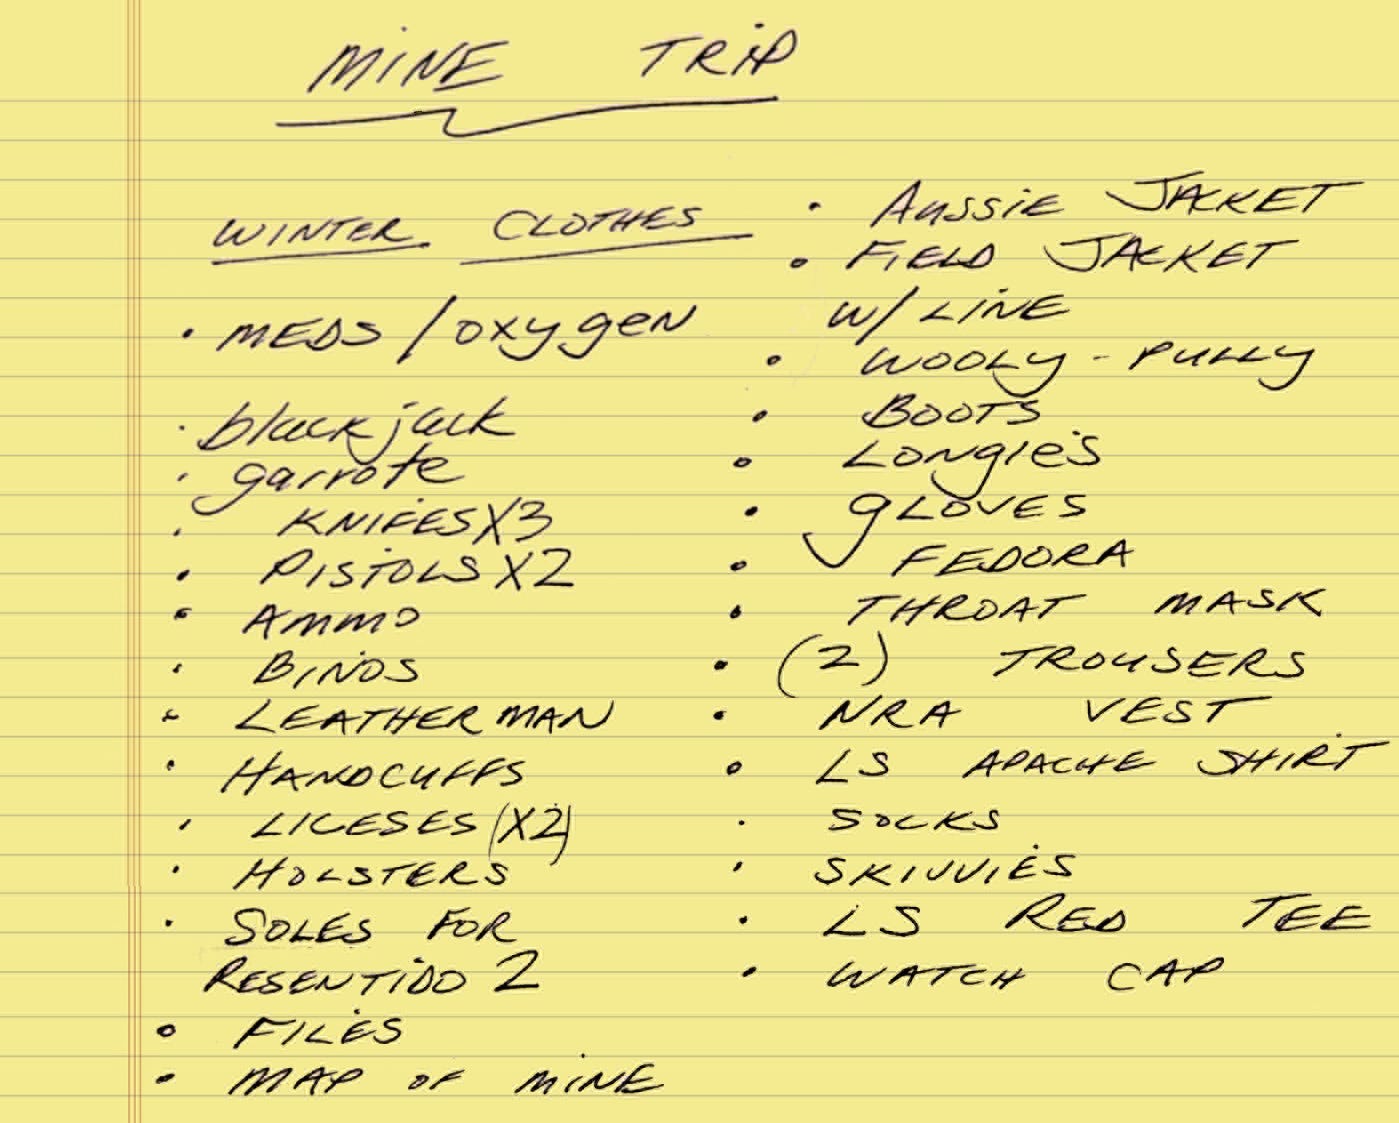 MINE TRIP
WINTER CLOTHES
• MEDS / oxygen
• blackjack
• garrote
• KNIFES X3
• PISTOLS X2
• AMMO
• BINOS
• LEATHERMAN
• HANDCUFFS
• LICESES (X2)
• HOLSTERS
• SOLES FOR
RESENTIDO 2
• FILES
• MAP OF MINE
• AUSSIE JACKET
• FIELD JACKET
W/ LINE
• WOOLY - PULLY
• BOOTS
• LONGIES
• GLOVES
• FEDORA
• THROAT MASK
• (2) TROUSERS
• NRA VEST
• LS APACHE SHIRT
• SOCKS
• SKIVVIES
• LS RED TEE
• WATCH CAP